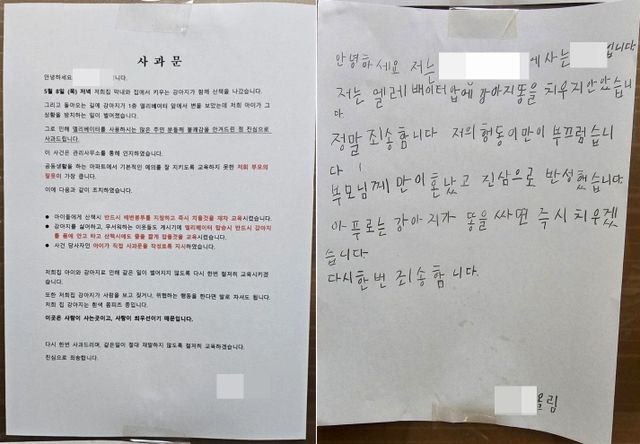 사 과 문
안녕하세요 니다.
5월 8일 (목) 저녁 저희집 막내와 집에서 키우는 강아지가 함께 산책을 나갔습니다.
그리고 돌아오는 길에 강아지가 1층 엘리베이터 앞에서 변을 보았는데 저희 아이가 그
상황을 방치하는 일이 벌어졌습니다.
그로 인해 엘리베이터를 사용하시는 많은 주민 분들께 불쾌감을 안겨드린 점 진심으로
사과드립니다.
이 사건은 관리사무소를 통해 인지하였습니다.
공동생활을 하는 아파트에서 기본적인 예의를 잘 지키도록 교육하지 못한 저희 부모의
잘못이 가장 큽니다.
이에 다음과 같이 조치하였습니다.
● 아이들에게 산책시 반드시 배변봉투를 지참하고 즉시 치울것을 재차 교육시켰습니다.
● 강아지를 싫어하고, 무서워하는 이웃들도 계시기에 엘리베이터 탑승시 반드시 강아지
를 품에 안고 타고 산책시에도 줄을 짧게 잡을것을 교육시켰습니다.
● 사건 당사자인 아이가 직접 사과문을 작성토록 지시하였습니다.
저희집 아이와 강아지로 인해 같은 일이 벌어지지 않도록 다시 한번 철저히 교육시키겠
습니다.
또한 저희집 강아지가 사람을 보고 짖거나, 위협하는 행동을 한다면 발로 차셔도 됩니다.
저희 집 강아지는 흰색 폼피츠 종입니다.
이곳은 사람이 사는곳이고, 사람이 최우선이기 때문입니다.
다시 한번 사과드리며, 같은일이 절대 재발하지 않도록 철저히 교육하겠습니다.
진심으로 죄송합니다.
안녕하세요 저는 에 사는 입니다.
저는 엘레베이터 앞에 강아지똥을 치우지안았습니
다
정말 죄송함니다 저의 형동이만이 부끄럽습니
다
부모님께 만이 혼났고 진심으로 반성했습니다.
아푸로는 강아지가 똥을 싸면 즉시 치우겠
습니다.
다시한번 죄송함니다.
올림